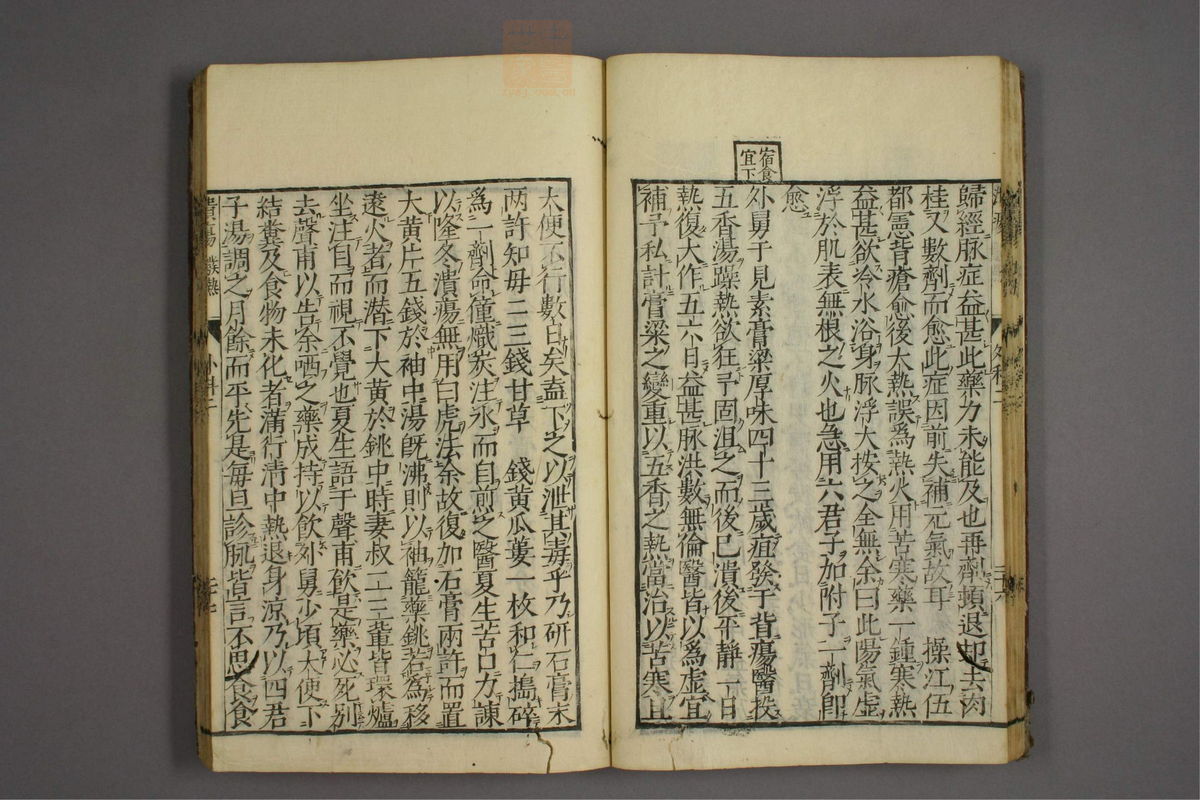 宿食
宜下
歸經脉症益甚此藥力未能及也再劑頓退却去肉
桂又數劑而愈此症因前失補元氣故耳　操江伍
都憲背瘡愈後大熱誤爲熱火用苦寒藥一鍾寒熱
益甚欲冷水浴身脉浮大按之全無余曰此陽氣虛
浮於肌表無根之火也急用六君子加附子一劑即
愈
外舅于見素膏粱厚味四十三歲疽發于背瘍醫投
五香湯躁熱欲狂予固沮之而後已潰後平靜一日
熱復大作五六日益甚脉洪數無倫醫皆以爲虛宜
補予私計膏粱之變重以五香之熱當治以苦寒且
大便不行數日矣盍下之以泄其毒乎乃研石膏末
两許知母二三錢甘草　錢黃瓜蔞一枚和仁搗碎
爲一劑命僮熾炭注水而自煎之醫夏生苦口力諫
以隆冬潰瘍無用白虎法余故復加石膏兩許而置
大黃片五錢於袖中湯既沸則以袖籠藥銚若爲移
遠火者而潜下大黃於銚中時妻叔二三輩皆環爐
坐注目而視不覺也夏生語于聲甫飲是藥必死別
去聲甫以告余哂之藥成持以飲外舅少頃大便下
結糞及食物未化者滿行清中熱退身涼乃以四君
子湯調之月餘而平先是每旦診脈皆言不思食食
外科二
二十六
潰瘍
發熱
外科二
二十七